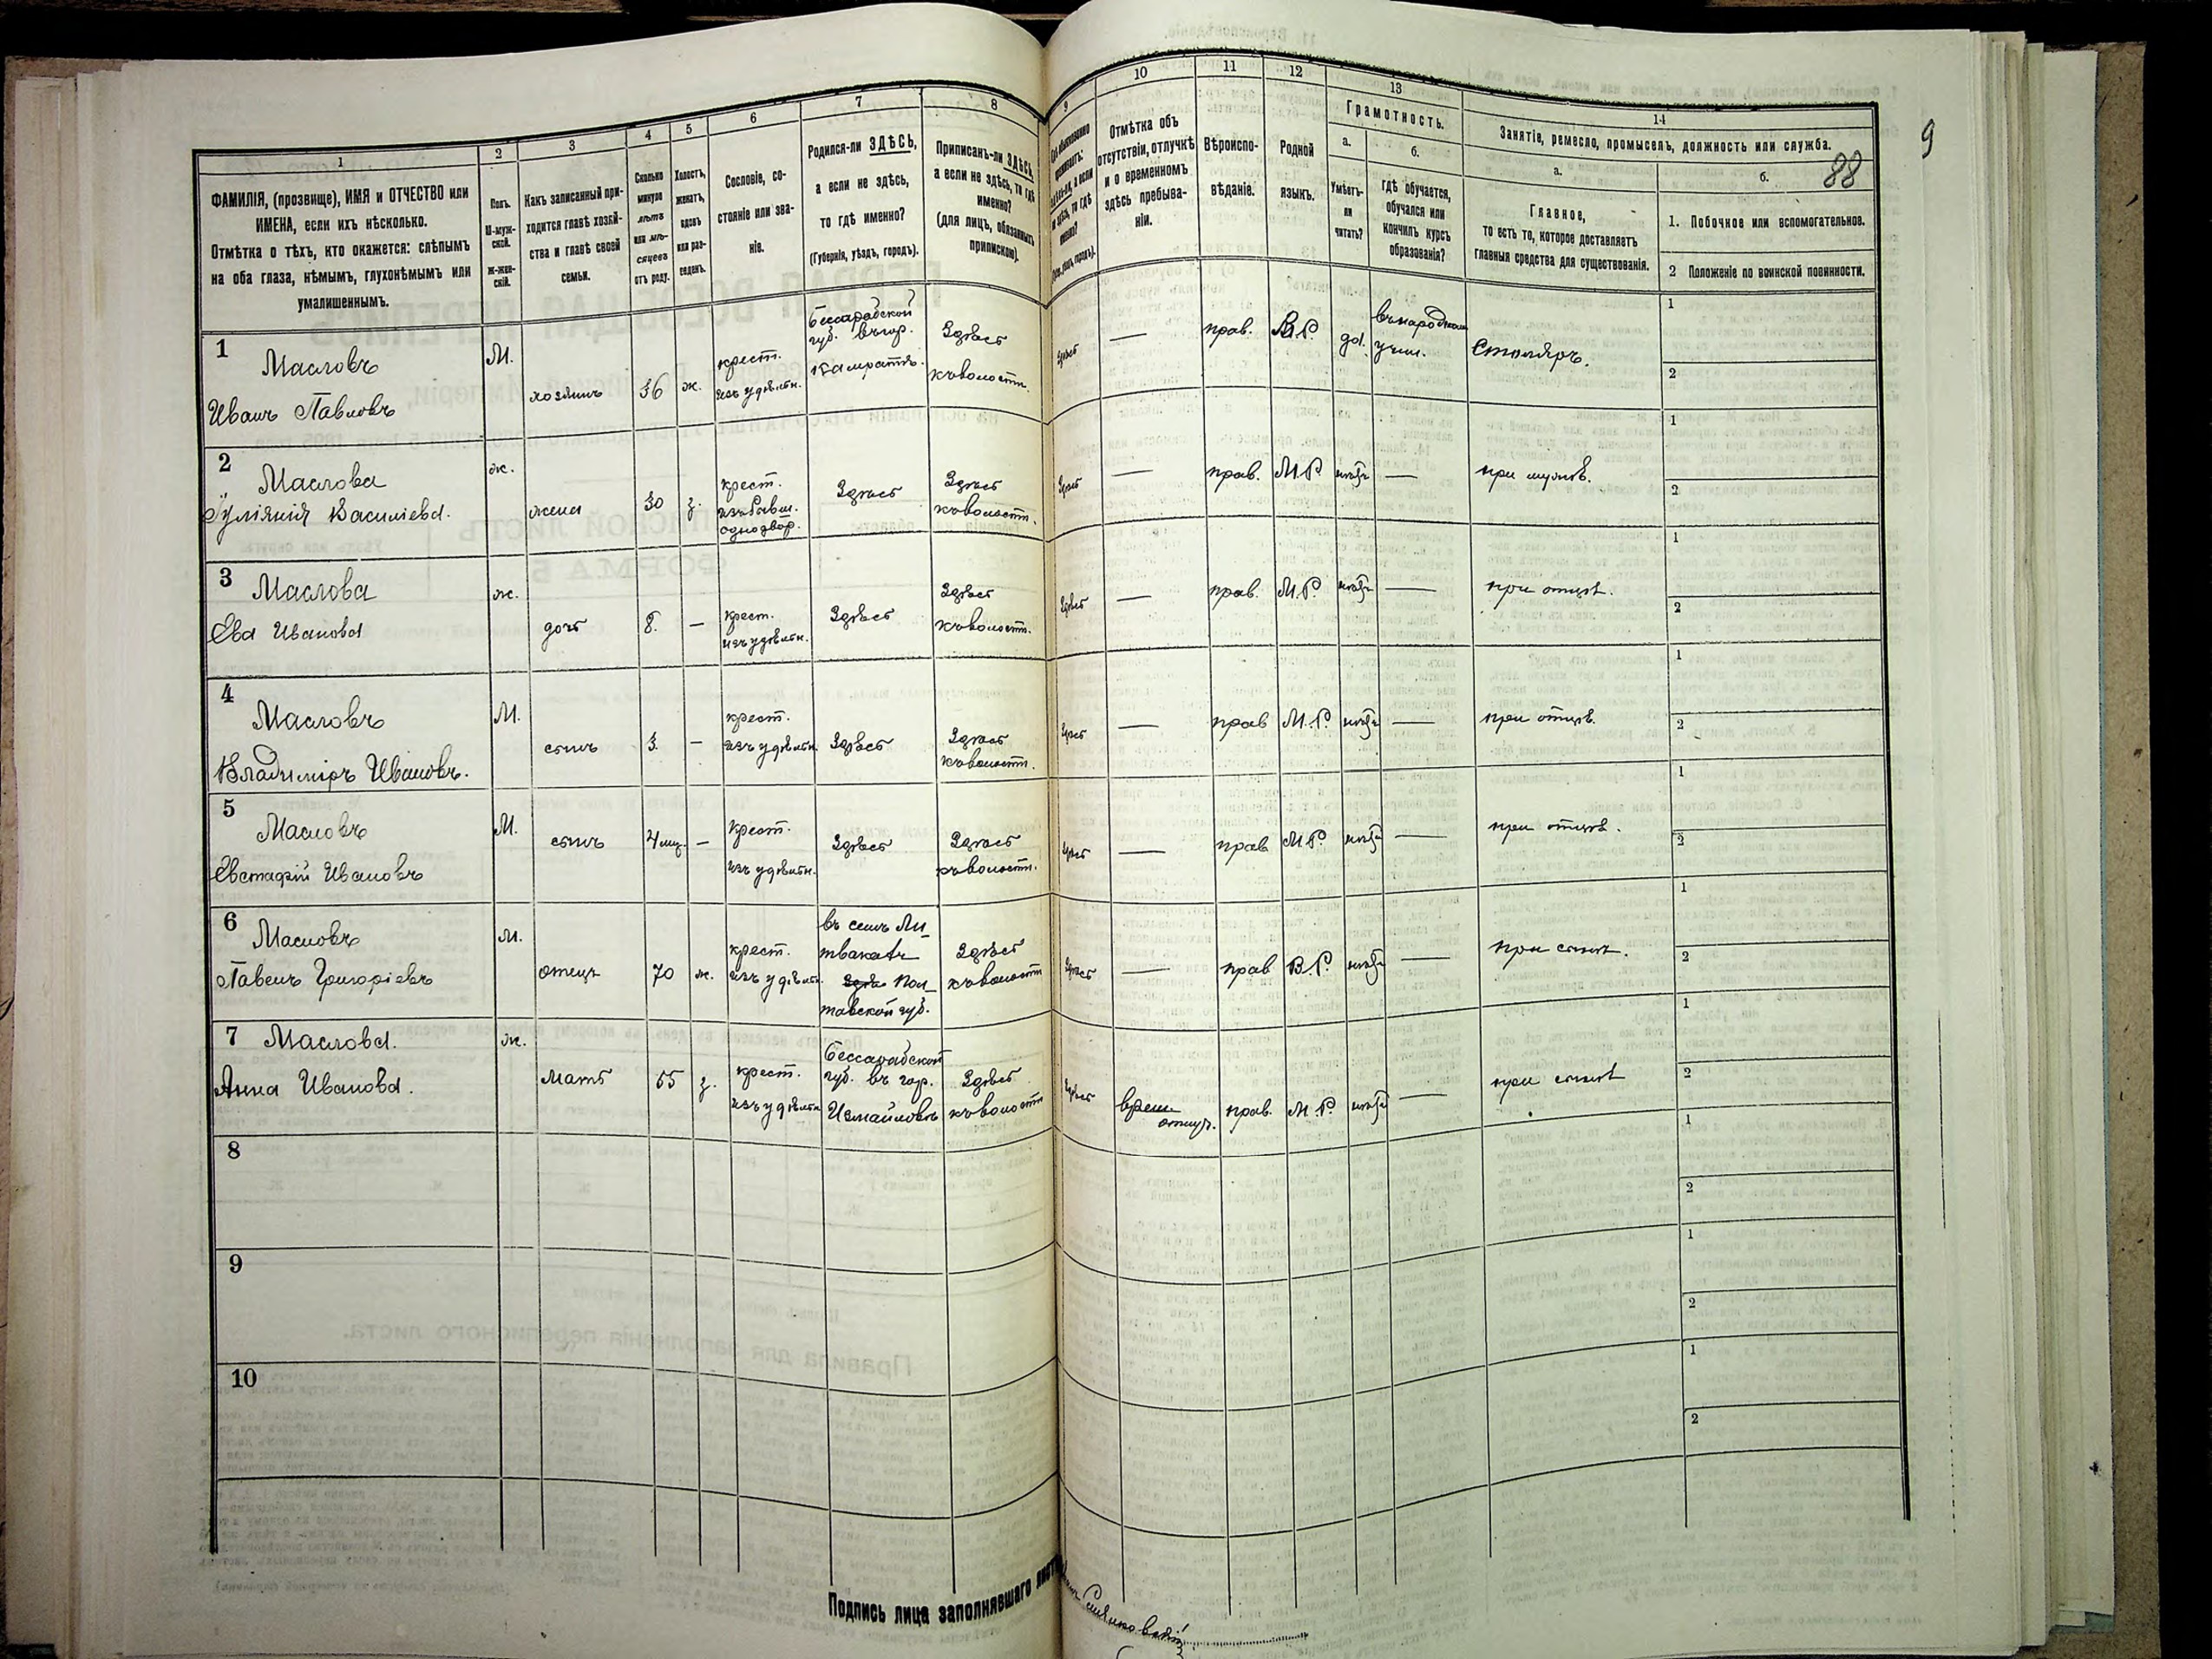 9
88
1
ФАМИЛІЯ, (прозвище), ИМЯ и ОТЧЕСТВО или
ИМЕНА, если ихъ нѣсколько.
Отмѣтка о тѣхъ, кто окажется: слѣпымъ
на оба глаза, нѣмымъ, глухонѣмымъ или
умалишеннымъ.
2
Полъ.
М-муж-
ской.
Ж-жен-
скій.
3
Какъ записанный при-
ходится главѣ хозяй-
ства и главѣ своей
семьи.
4
Сколько
минуло
лѣтъ
или мѣ-
сяцевъ
отъ роду.
5
Холостъ,
женатъ,
вдовъ
или раз-
веденъ.
6
Сословіе, со-
стояніе или зва-
ніе.
7
Родился-ли ЗДѢСЬ,
а если не здѣсь,
то гдѣ именно?
(Губернія, уѣздъ, городъ).
8
Приписанъ-ли ЗДѢСЬ,
а если не здѣсь, то гдѣ
именно?
(для лицъ, обязанныхъ
припискою).
9
10
Отмѣтка объ
отсутствіи, отлучкѣ
и о временномъ
здѣсь пребыва-
ніи.
11
Вѣроиспо-
вѣданіе.
12
Родной
языкъ.
13
Грамотность.
а.
Умѣетъ-
ли
читать?
б.
гдѣ обучается,
обучался или
кончилъ курсъ
образованія?
14
Занятіе, ремесло, промыселъ, должность или служба.
а.
Главное,
то есть то, которое доставляетъ
главныя средства для существованія.
б.
1. Побочное или вспомогательное.
2 Положеніе по воинской повинности.
1
Масловъ
Иванъ Павловъ
М.
хозяинъ
36
ж.
крест.
изъ удѣльн.
Бессарабской
губ. въ гор.
Камратѣ.
Здѣсь
къ волости
Здѣсь
—
прав.
В.Р.
да.
въ народномъ
учил.
Столяръ.
1
2
2
Маслова
Іуліянія Василіева.
ж.
жена
30
з.
крест.
изъ бывш.
однодвор.
Здѣсь
Здѣсь
къ волости.
Здѣсь
—
прав.
М.Р.
нѣтъ
—
при мужѣ.
1
2
3
Маслова
Ева Иванова
ж.
дочь
8.
—
крест.
изъ удѣльн.
Здѣсь
Здѣсь
къ волости.
Здѣсь
—
прав.
М.Р.
нѣтъ
—
при отцѣ.
1
2
4
Масловъ
Владиміръ Ивановъ.
М.
сынъ
3.
—
крест.
изъ удѣльн.
Здѣсь
Здѣсь
къ волости.
Здѣсь
—
прав
М.Р.
нѣтъ
—
при отцѣ.
1
2
5
Масловъ
Евстафій Ивановъ
М.
сынъ
4 мѣс.
—
крест.
изъ удѣльн.
Здѣсь
Здѣсь
къ волости.
Здѣсь
—
прав
М.Р.
нѣтъ
—
при отцѣ.
1
2
6
Масловъ
Павелъ Григоріевъ
М.
отецъ
70
ж.
крест.
изъ удѣльн.
въ селѣ Ли-
твакахъ
Пол-
тавской губ.
Здѣсь
къ волости
Здѣсь
—
прав
В.Р.
нѣтъ
—
при сынѣ.
1
2
7
Маслова.
Анна Иванова.
ж.
мать
65
з.
крест.
изъ удѣльн.
Бессарабской
губ. въ гор.
Измаиловѣ
Здѣсь
къ волости
Здѣсь
врем.
отлуч.
прав.
М.Р.
нѣтъ
—
при сынѣ
1
2
8
1
2
9
1
2
10
1
2
Подпись лица заполнявшаго